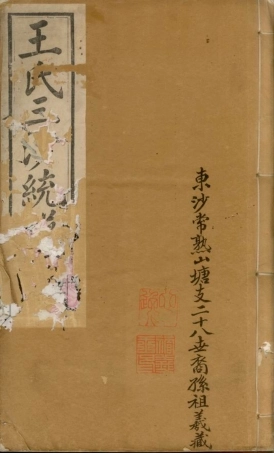 王氏三沙統
東沙常熟山塘支二十八世裔孫祖羲藏